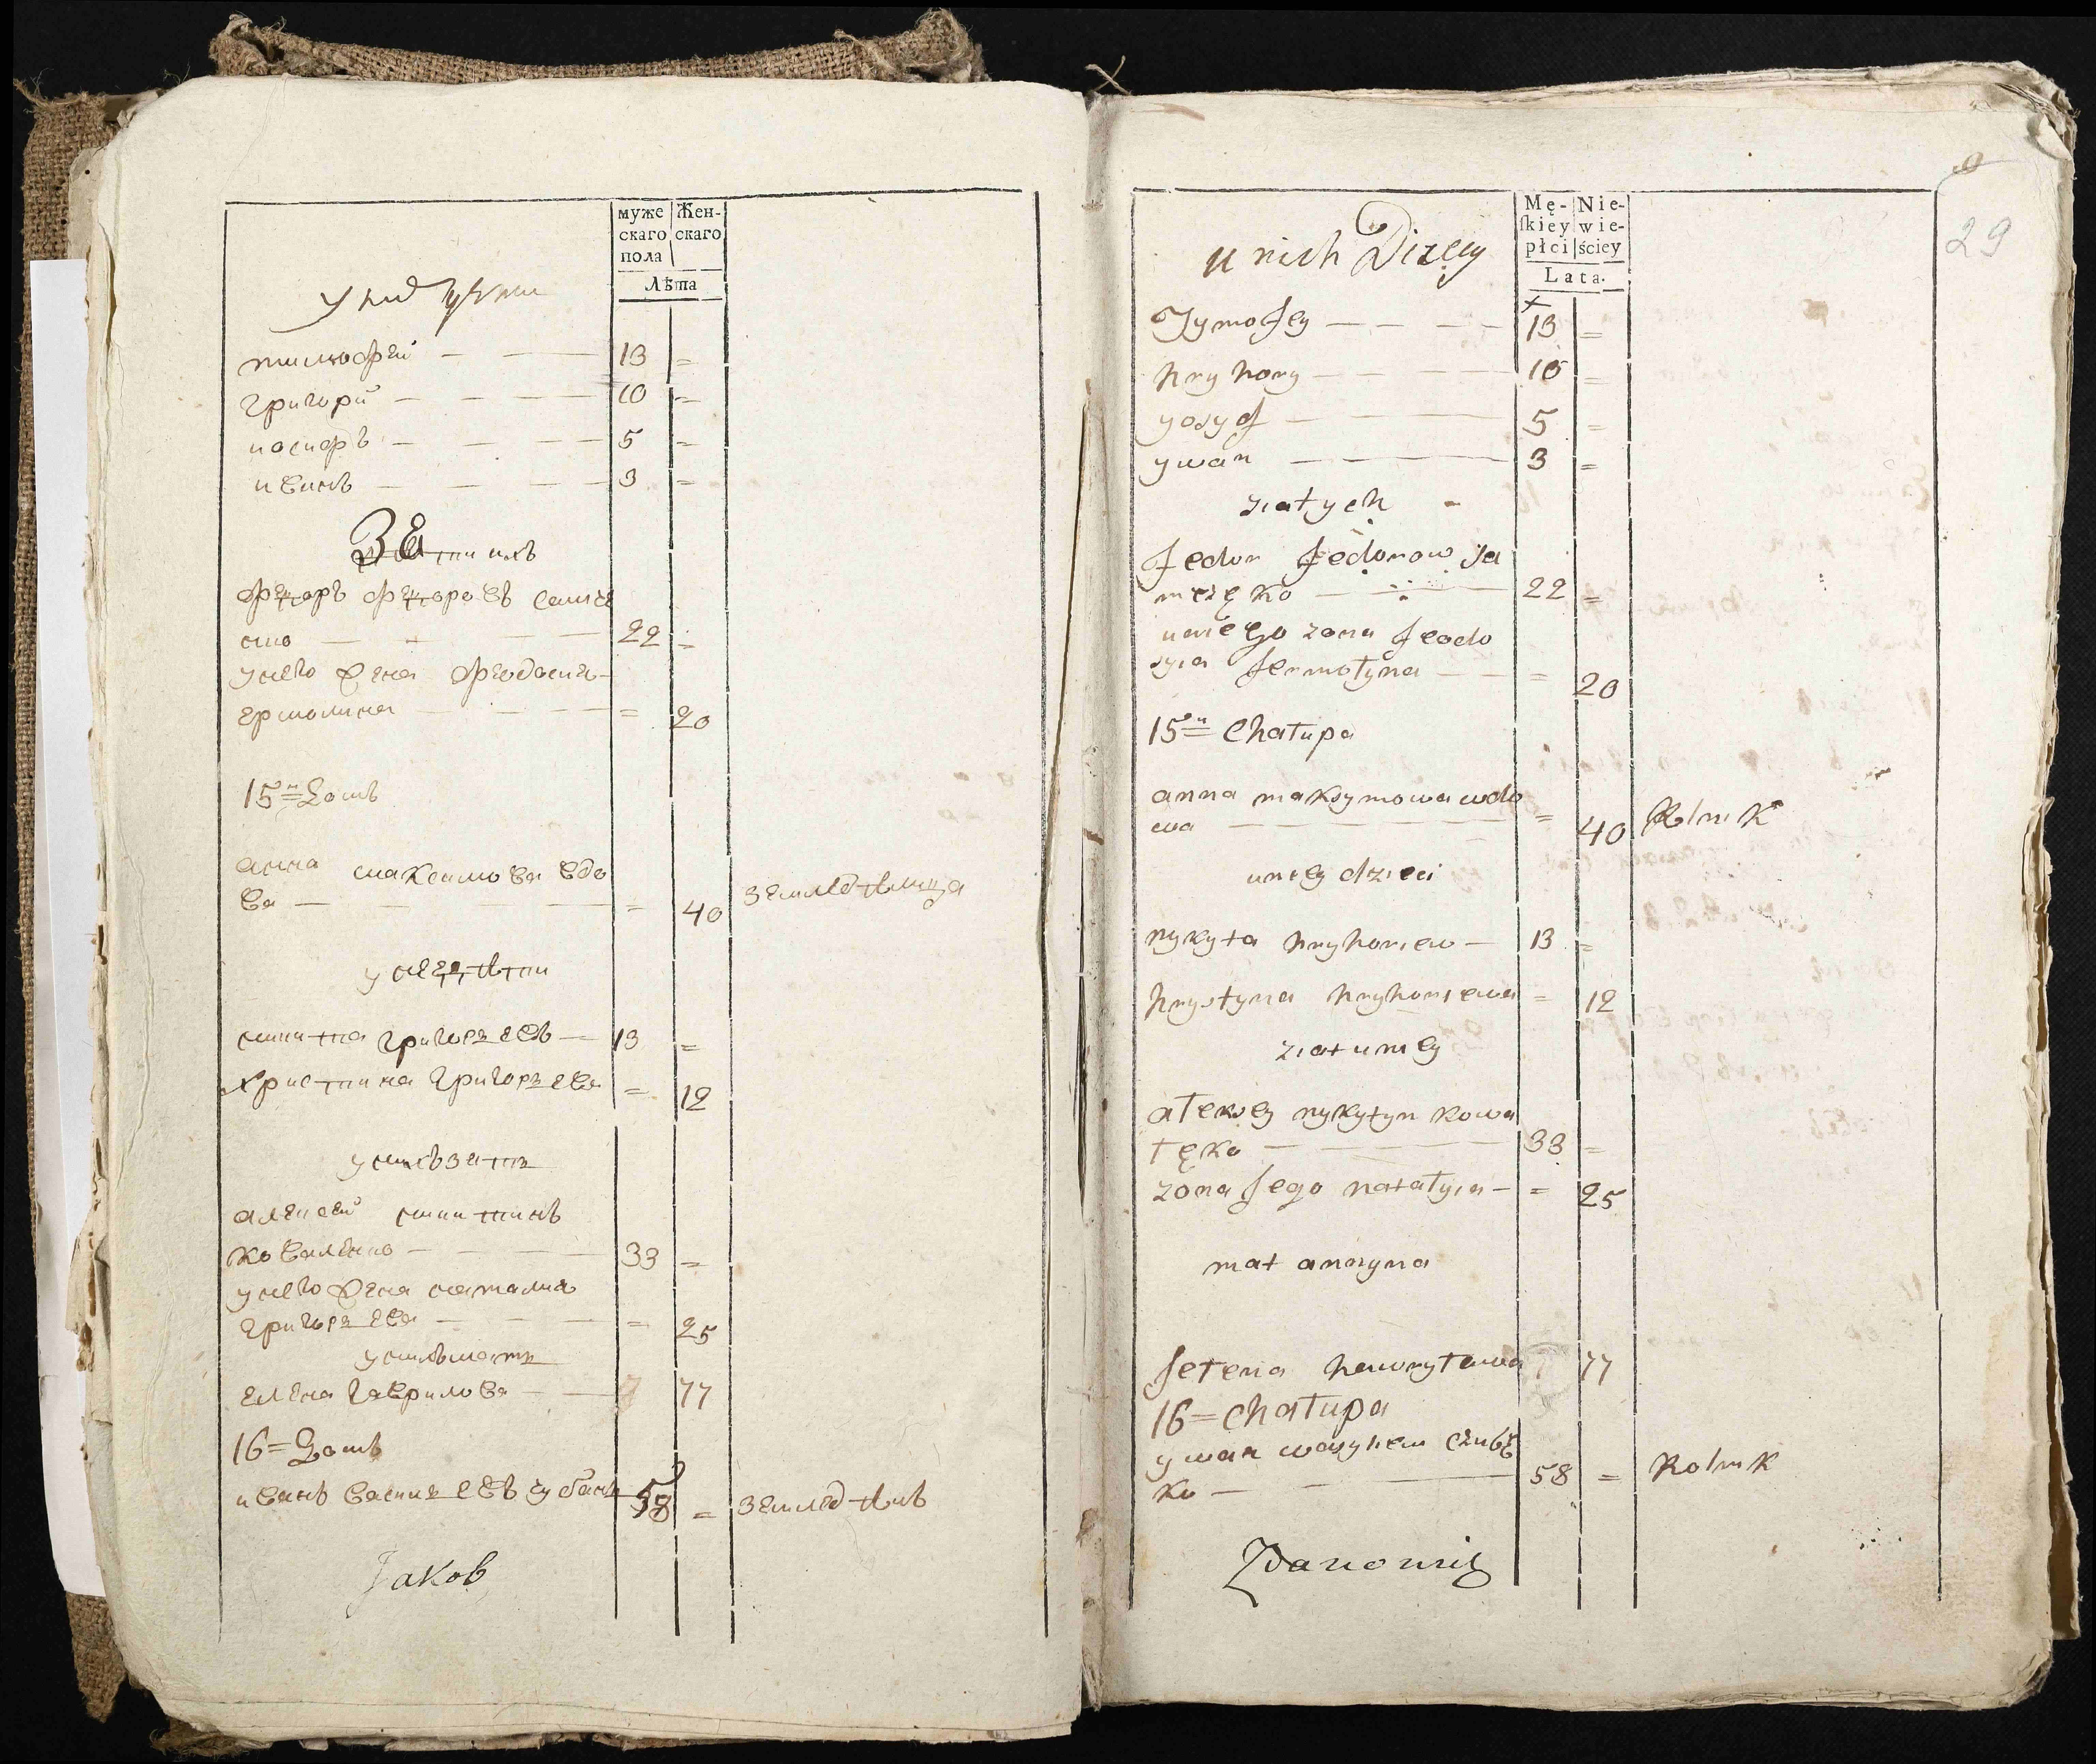 муже Жен-
скаго скаго
пола
Лѣта
у них дѣти
тимофей — — — 13 =
григорій — — — — 10 =
иосифъ — — — — 5 =
иванъ — — — — 3 =
Зе
федоръ федоровъ
22 =
у него жена феодосия
ермолина — — — — = 20
15й = домъ
анна максимова вдо
ва — — — — = 40 земледѣлица
у неѣ дѣти
никита григорьевъ — 13 =
христина григорьева = 12
у нихъ зять
алексей никитинъ
коваленко — — — — 33 =
у него жена наталия
григорьева — — — = 25
у нихъ мать
елена гаврилова — — 77
16 = домъ
иванъ васильевъ 58 = земледѣлъ
Jakob
Mę- Nie-
ſkiey wie-
płci ściey
Lata.
29
u nich Dizecy
Tymofey — — — — 13 =
hryhory — — — — 10 =
yosyf — — — 5 =
ywan — — — — 3 =
ziatych
fedor fedorow Sa
męzęko — — 22 =
uniego zona feodo
syia Jermołyna — — = 20
15n = Chałupa
anna maksymowa wdo
wa — — — — — = 40 Rolnik
uniey dzieci
nykyta hryhoriew — 13 =
hrystyna hryhoriewa = 12
ziat uniey
ałeksey nykytyn kowa
łęko — — — — 33 =
zona Jego natałyia — = 25
mat annyna
Jełena hawryłowa 77
16 = Chałupa
ywan wasylew czubę
ko — — — 58 = Rolnik
Zdanowicz